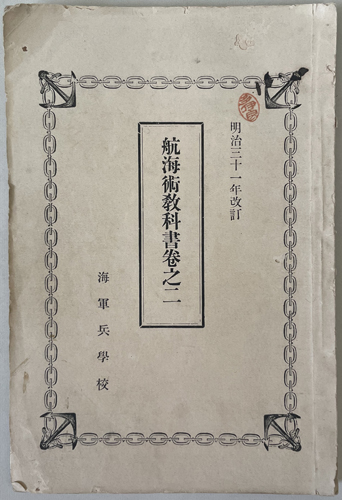 明治三十一年改訂
航海術教科書卷之二
海軍兵學校